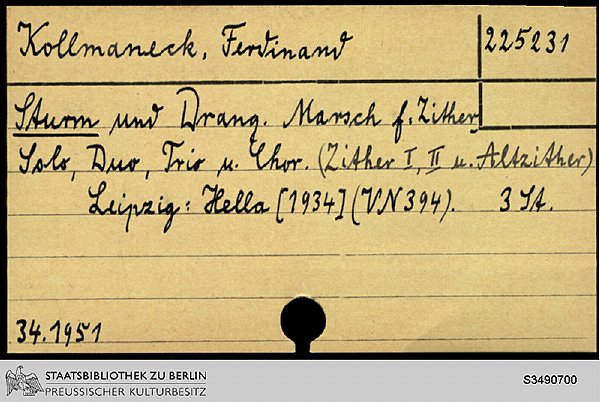 Kollmaneck, Ferdinand
225231
Sturm und Drang. Marsch f. Zither
Solo, Duo, Trio u. Chor. (Zither I, II u. Altzither)
Leipzig: Hella [1934] (VN 394). 3 St.
34.1951
STAATSBIBLIOTHEK ZU BERLIN
PREUSSISCHER KULTURBESITZ
S3490700